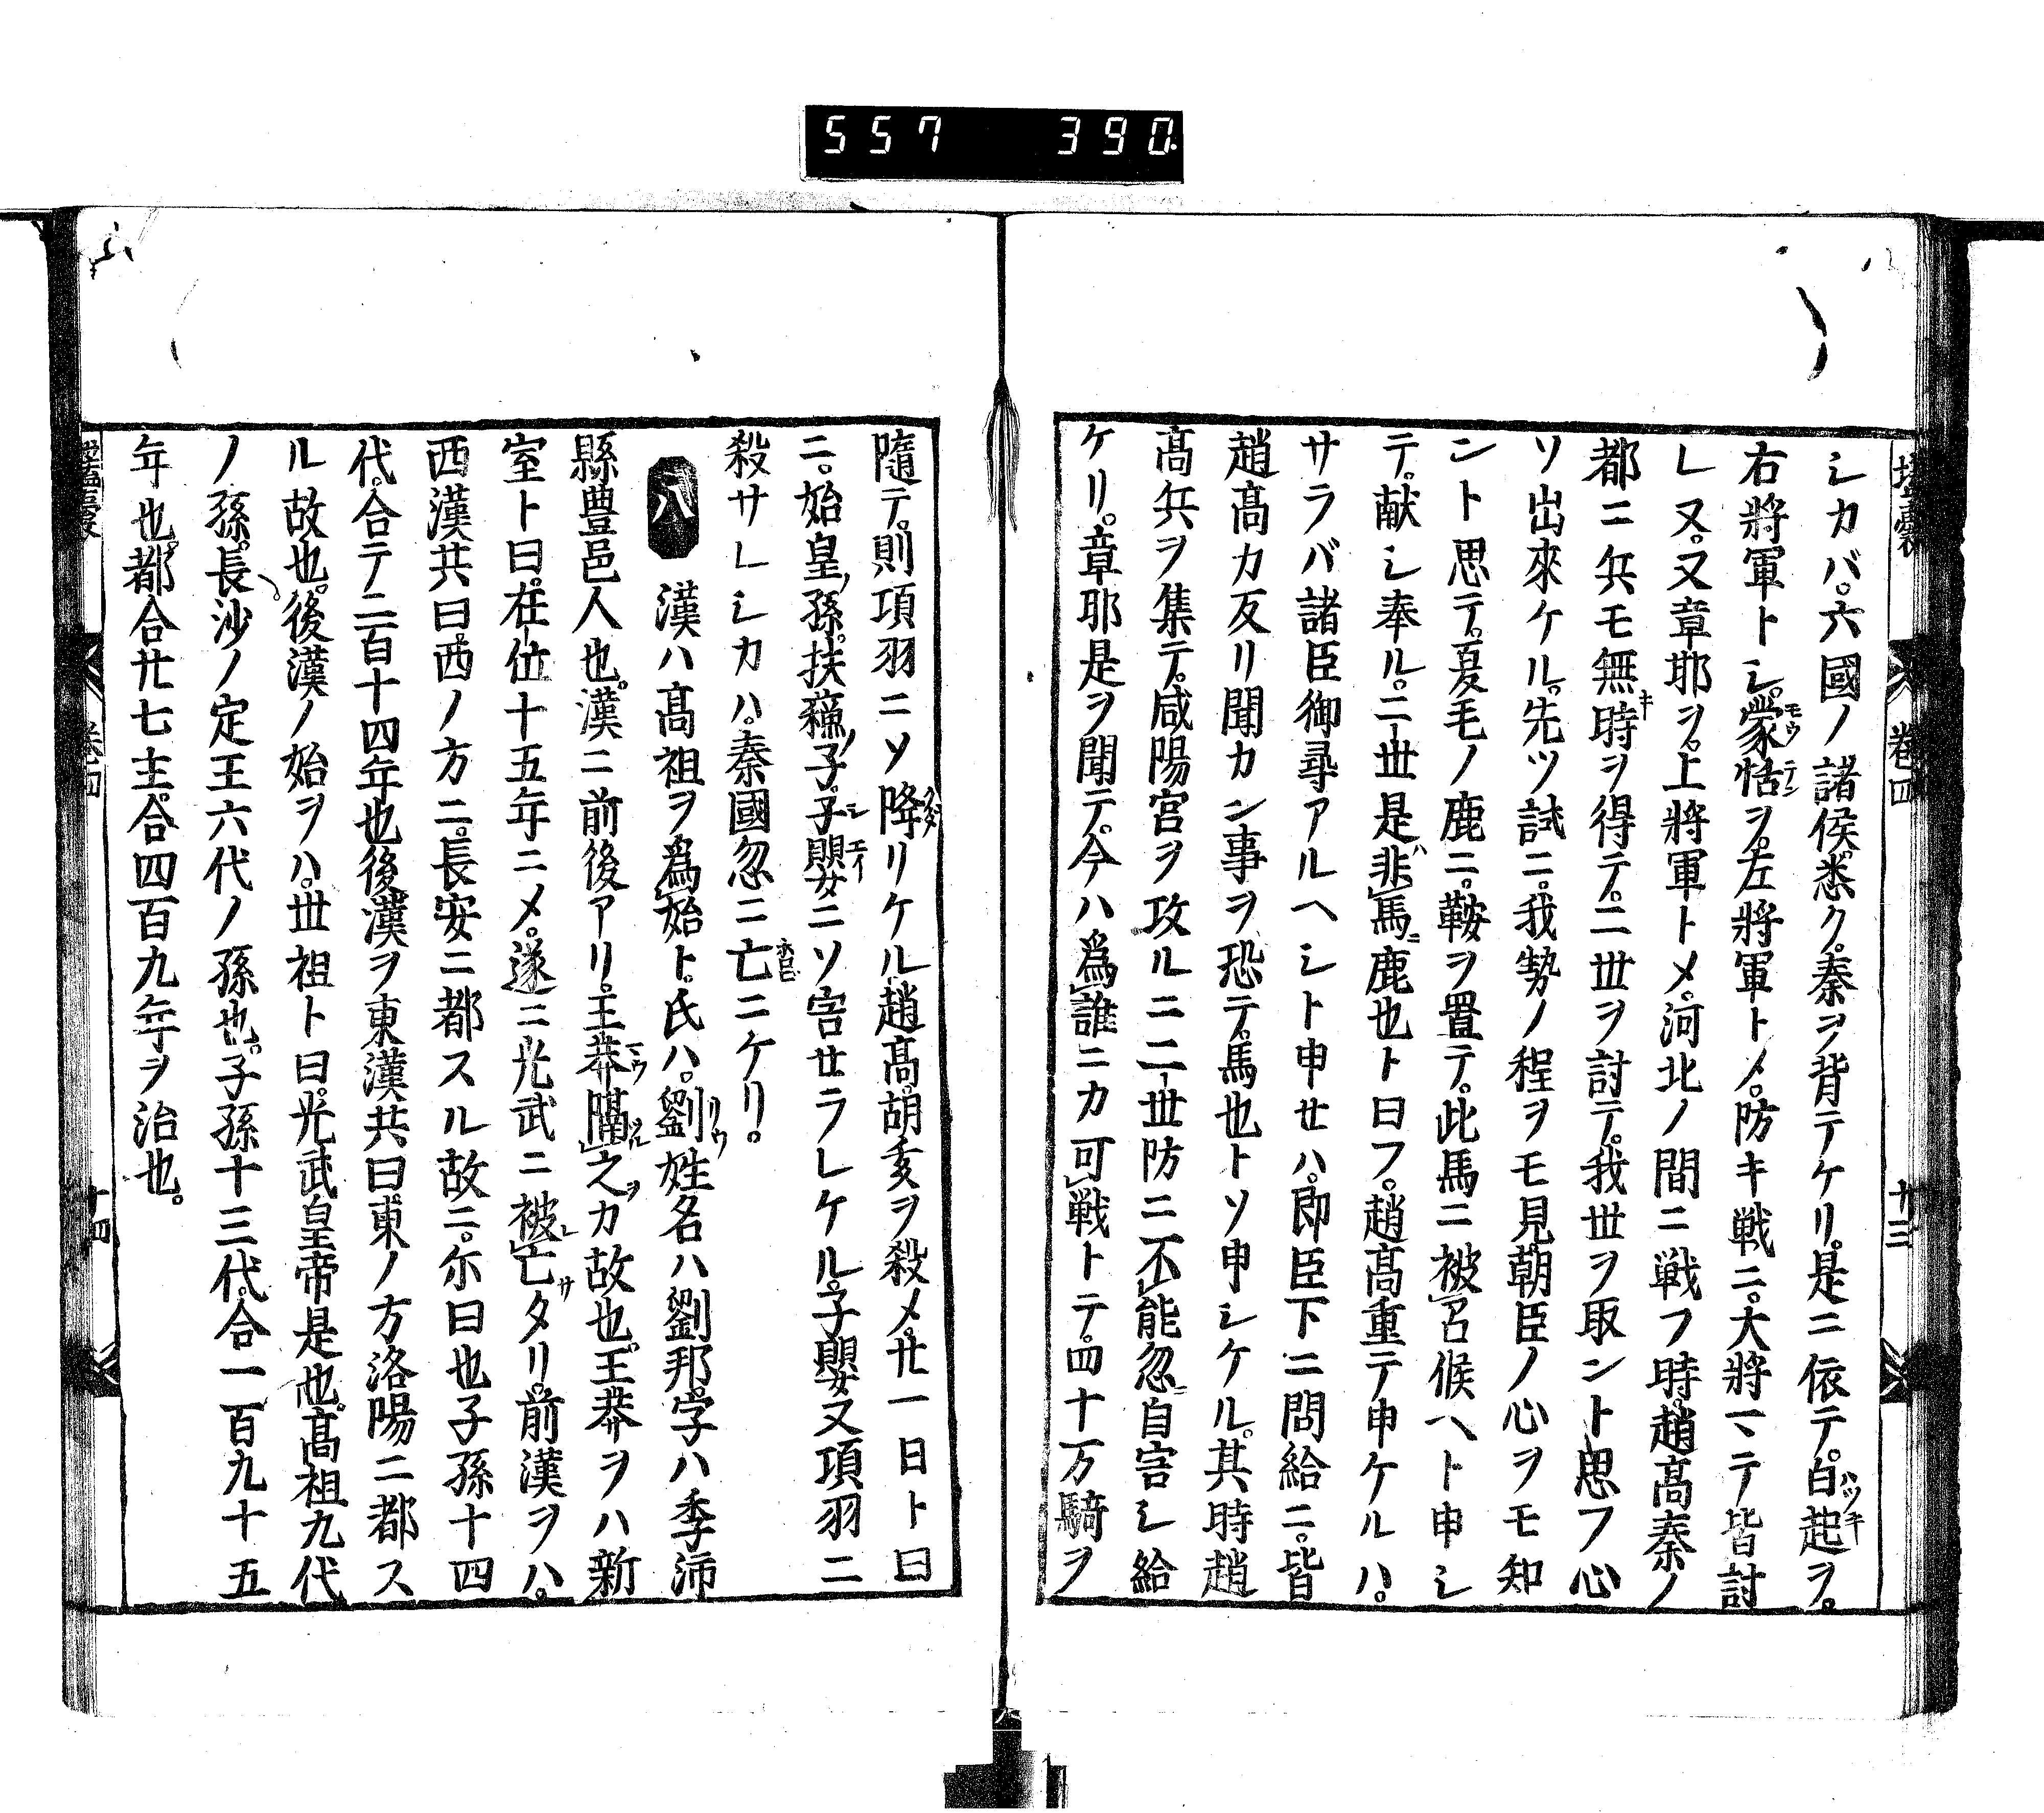 557 390.
壒囊 卷四 廿三
シカバ。六國ノ諸侯悉ク。秦ヲ背テケリ。是ニ依テ。白起ヲ。
右將軍トシ。蒙恬ヲ。左將軍トメ。防キ戦ニ。大將マテ皆討
レヌ。又章耶ヲ。上將軍トメ。河北ノ間ニ戦フ時。趙髙秦ノ
都ニ兵モ無時ヲ得テ。二世ヲ討テ。我世ヲ取ント思フ心
ソ出來ケル。先ツ試ニ。我勢ノ程ヲモ見。朝臣ノ心ヲモ知
ント思テ。夏毛ノ鹿ニ。鞍ヲ置テ。此馬ニ被召候ヘト申シ
テ。献シ奉ル。二世是非馬鹿也ト曰フ。趙髙重テ申ケルハ。
サラバ諸臣御尋アルヘシト申せハ。即臣下ニ問給ニ。皆
趙髙カ反リ聞カン事ヲ恐テ。馬也トソ申シケル。其時趙
髙兵ヲ集テ。咸陽宮ヲ攻ルニ二世防ニ不能忽自害シ給
ケリ。章耶是ヲ聞テ。今ハ爲誰ニカ可戦トテ。四十万騎ヲ
隨テ。則項羽ニソ降リケル。趙髙。胡亥ヲ殺メ。廿一日ト曰
ニ。始皇ノ孫。扶蘓ノ子。子嬰ニソ害せラレケル。子嬰又項羽ニ
殺サレシカハ。秦國忽ニ亡ニケリ。
八 漢ハ髙祖ヲ爲始ト。氏ハ。劉姓名ハ劉邦。字ハ季沛
縣豊邑人也。漢ニ前後アリ。王莽隔之カ故也。王莽ヲハ新
室ト曰。在位十五年ニメ。遂ニ光武ニ被亡タリ。前漢ヲハ。
西漢共曰。西ノ方ニ。長安ニ都スル故ニ。尓曰也子孫十四
代。合テ二百十四年也後漢ヲ東漢共曰。東ノ方洛陽ニ都ス
ル故也。後漢ノ始ヲハ。世祖ト曰。光武皇帝是也。髙祖九代
ノ孫。長沙ノ定王六代ノ孫也。子孫十三代。合一百九十五
年也。都合廿七主。合四百九年ヲ治也。
卷四 十四